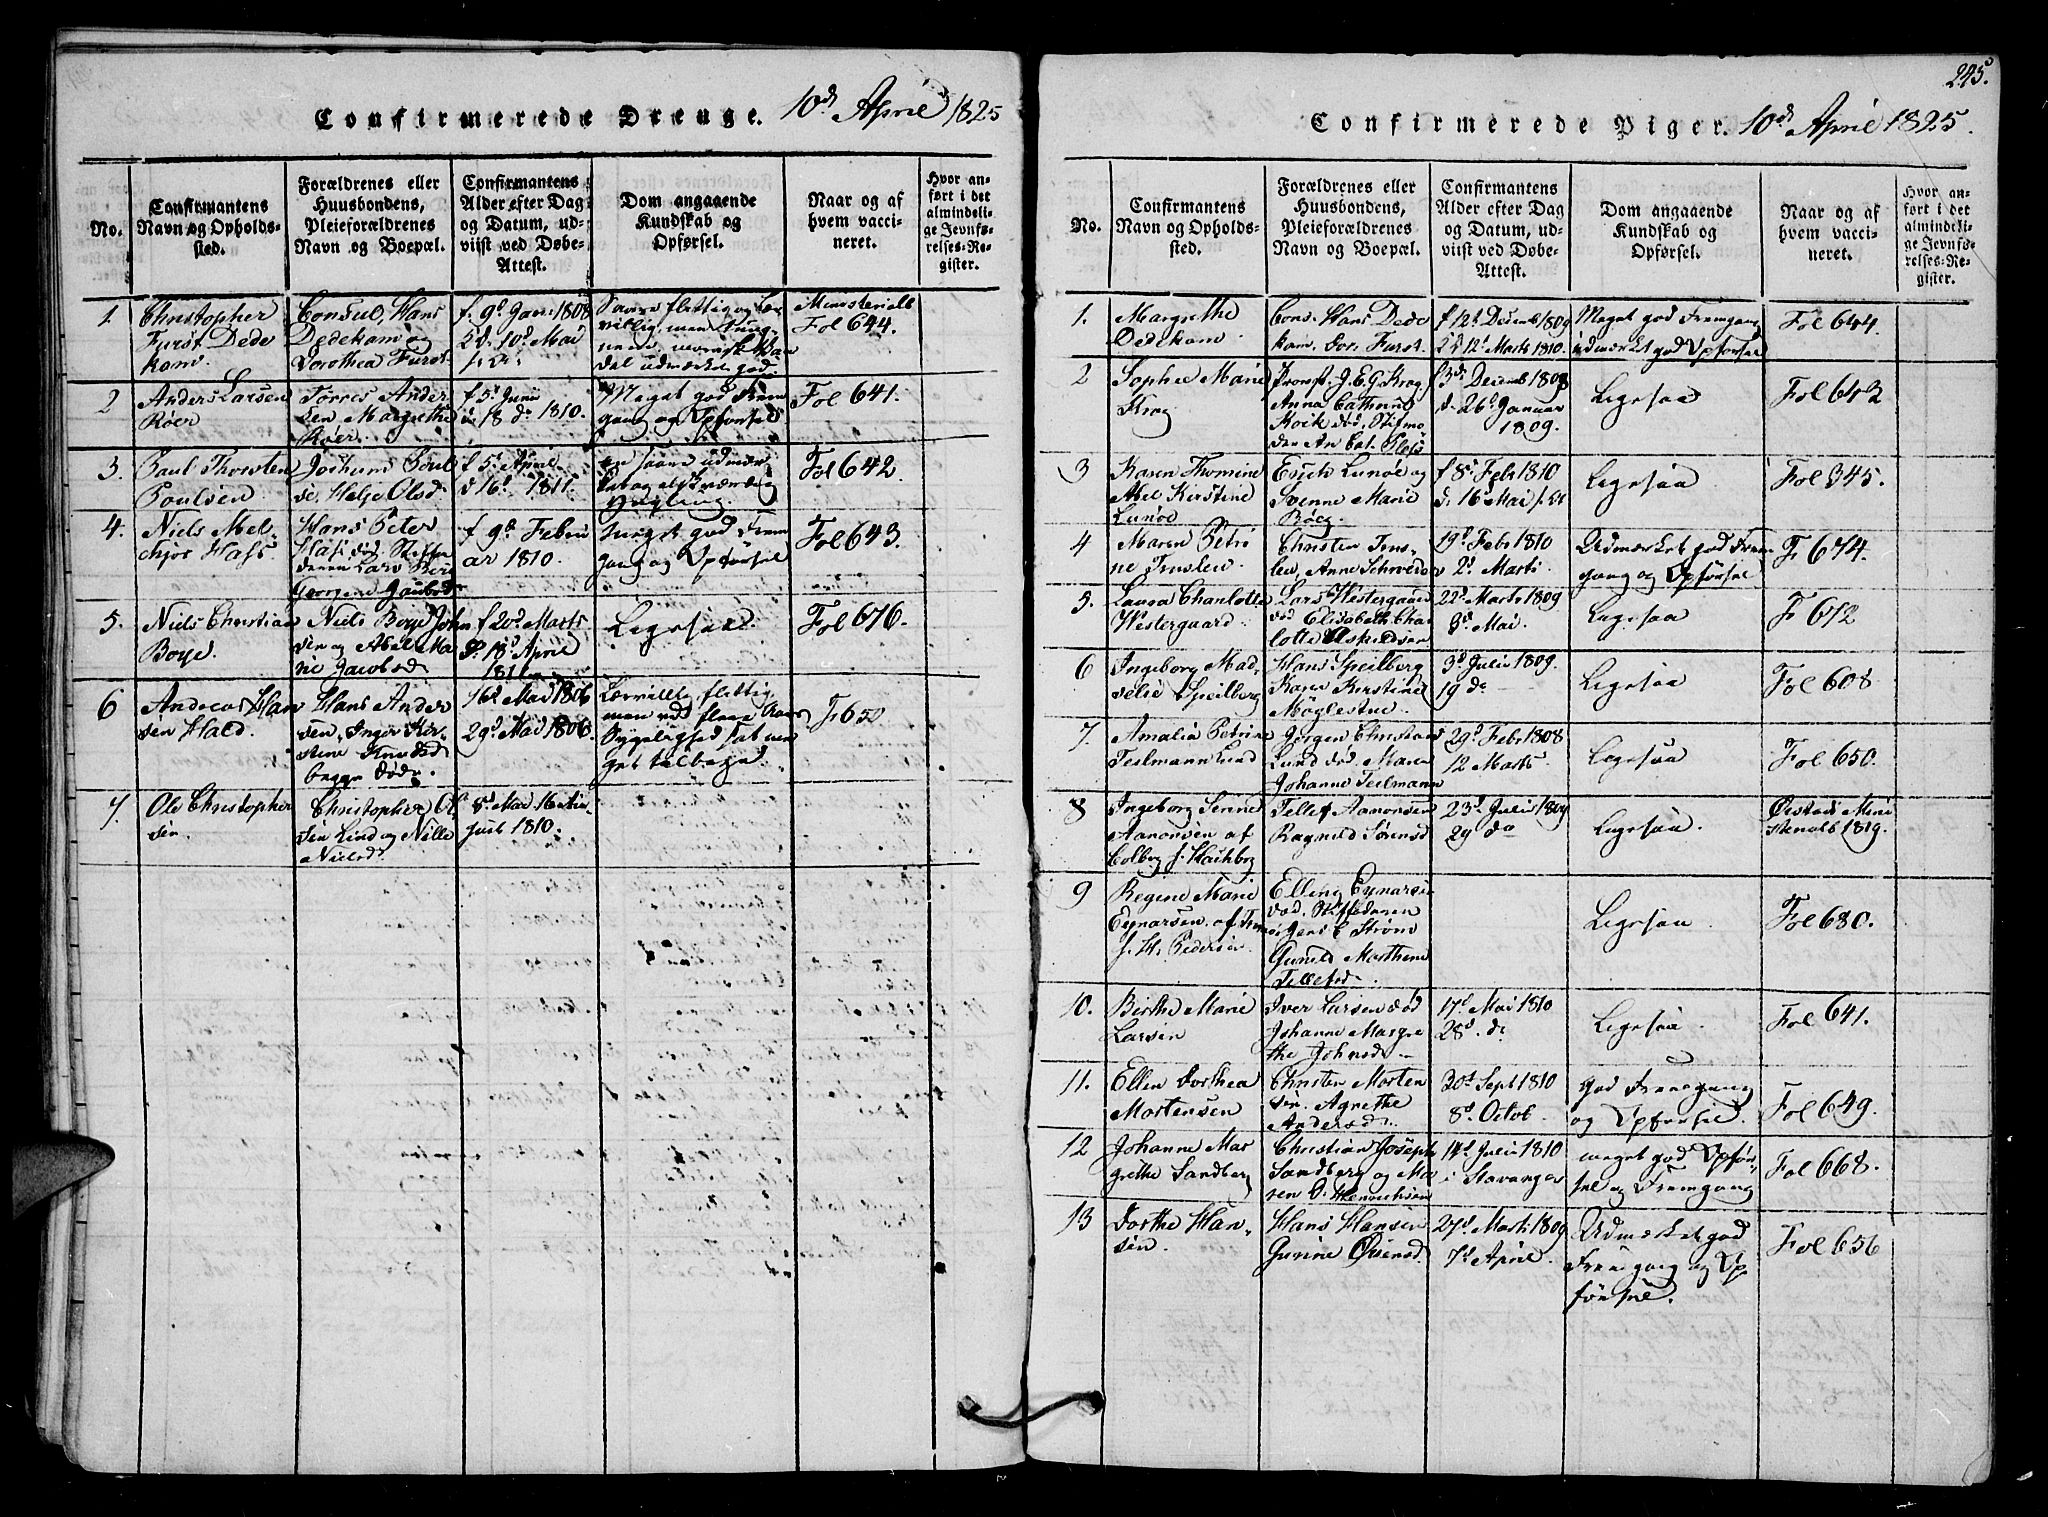 Confirmerede Drenge. 10d April 1825
No.
Confirmantens Navn og Opholdssted.
Forældrenes eller Huusbondens, Pleieforældrenes Navn og Boepæl.
Confirmantens Alder efter Dag og Datum, udviist ved Døbe-Attest.
Dom angaaende Kundskab og Opførsel.
Naar og af hvem vaccineret.
Hvor anført i det almindelige Jevnførelses-Register.
1.
Christopher
Furst Dede
kam.
Consul, Hans
Dedekam og
Dorothea Furst
f. 9d Jani 1808
d. 10d Mai
Ministerialb
Fol 644.
2
Anders Larsen
Röer
Torres Ander
sen Margrethe
Röer.
f 5d Junii
18 do 1810.
Meget god Frem
gang og Opförsel
Fol 641.
3.
Paul Thorsten
Poulsen
Jochum Poul
se. Helje Olsd
f 5d April
d 16d 1811.
Fol 642.
4.
Niels Mel
chior Hass
Hans Peter
Hass död. Stiffa
deren Lars
f 9d Febru
ar 1810.
meget god Frem
gang og Opförsel
Fol 643.
5.
Niels Christian
Boye.
Niels Boye John
sen og Abel Ma
rie Jacobsd
f 20d Marts
d. 18d April
1811
Ligesaa.
Fol 676.
6
Andreas Han
sen Hald.
Hans Ander
sen, Inger Kir
stine Knudsd
begge döde.
16d Mai 1806
29d Mai 1806.
Lærvillig, flittig
men ved flere Aars
Sygelighed sat me
get tilbage.
F 650
7.
Ole Christopher
sen
Christopher Ol
sen Lind og Nille
Nielsd
8d Mai 16 Au
gust 1810.
245.
Confirmerede Piger. 10d April 1825.
No.
Confirmantens Navn og Opholdssted.
Forældrenes eller Huusbondens, Pleieforældrenes Navn og Boepæl.
Confirmantens Alder efter Dag og Datum, udviist ved Døbe-Attest.
Dom angaaende Kundskab og Opførsel.
Naar og af hvem vaccineret.
Hvor anført i det almindelige Jevnførelses-Register.
1.
Margrethe
Dedekam
Cons. Hans Dede
kam, Dor. Furst.
f 12d Decemb 1809
d 12d Marts 1810.
Meget god Fremgang
udmærket god Opförsel
Fol 644.
2
Sophie Marie
Krog
Provst J.E.G. Krog
Anna Cathrine
Koik död, Stifmo
der An Cat. Pless
f 3d Decemb 1808
d. 26d Januar
1809.
Ligesaa
Fol 643
3
Karen Thomine
Abel Kirstine
Lunöe
Erich Lunöe og
Svenne Marie
Röeg.
f 8d Febr 1810
d. 16d Mai
Ligesaa
Fol 345.
4
Maren Petri
ne Jenslen.
Christen Jens
len, Anne
19d Febr 1810
2d Marts
Udmærket god Frem
gang og Opförsel
F. 674.
5.
Laura Charlotte
Westergaard
Lars Westergaard
död Elisabeth Char
lotte
22d Marts 1809
8d Mai.
Ligesaa
F 672
6
Ingeborg Mad
selie Speilberg
Hans Speilberg
Karen Kirstine
Möglestue.
3d Julii 1809.
19 do
Ligesaa
Fol 608
7.
Amalia Petrine
Teilmann Lund
Jörgen Christian
Lund död. Maren
Johanne Teilmann
29d Febr 1808
12 Marts.
Ligesaa
Fol 650.
8
Ingeborg Serine
Aanonsen af
Colberg
Tellef Aanonsen
Ragnild Sörensd
23d Julii 1809
29 do
Ligesaa.
Öiestads Mini
sterialb 1819.
9
Regine Marie
Eynarsen, af
J. H. Pedersen
Elling Eynarse
död. Stiffaderen
Jens C Ström
Gunild Marthine
Tellefsd.
Ligesaa
Fol 680.
10.
Birthe Marie
Larsen
Iver Larsen död
Johanne Margre
the Johnsd
17d Mai 1810
28d do
Ligesaa
Fol 641.
11.
Ellen Dorthea
Mortensen
Christen Morten
sen. Agnethe
Andersd.
30d Sept 1810
8d Octob.
God Fremgang
og Opförsel.
Fol 649.
12
Johanne Mar
grethe Sandberg
Christian Joseph
Sandberg og Ma
ren D. Henrichsen
14d Julii 1810
i Stavanger
meget god Opför
sel og Fremgang
Fol 668.
13
Dorthe Han
sen.
Hans Hansen
Gurine Evensd.
27d Marts 1809
7d April.
Udmærket god
Fremgang og Op
förssel.
Fol 656